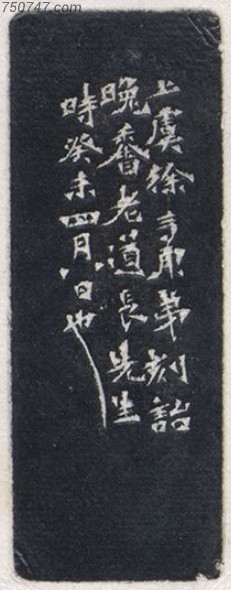 750747.com
上虞徐三庚弟刻詒
晚香老道長先生
時癸未四月八日也